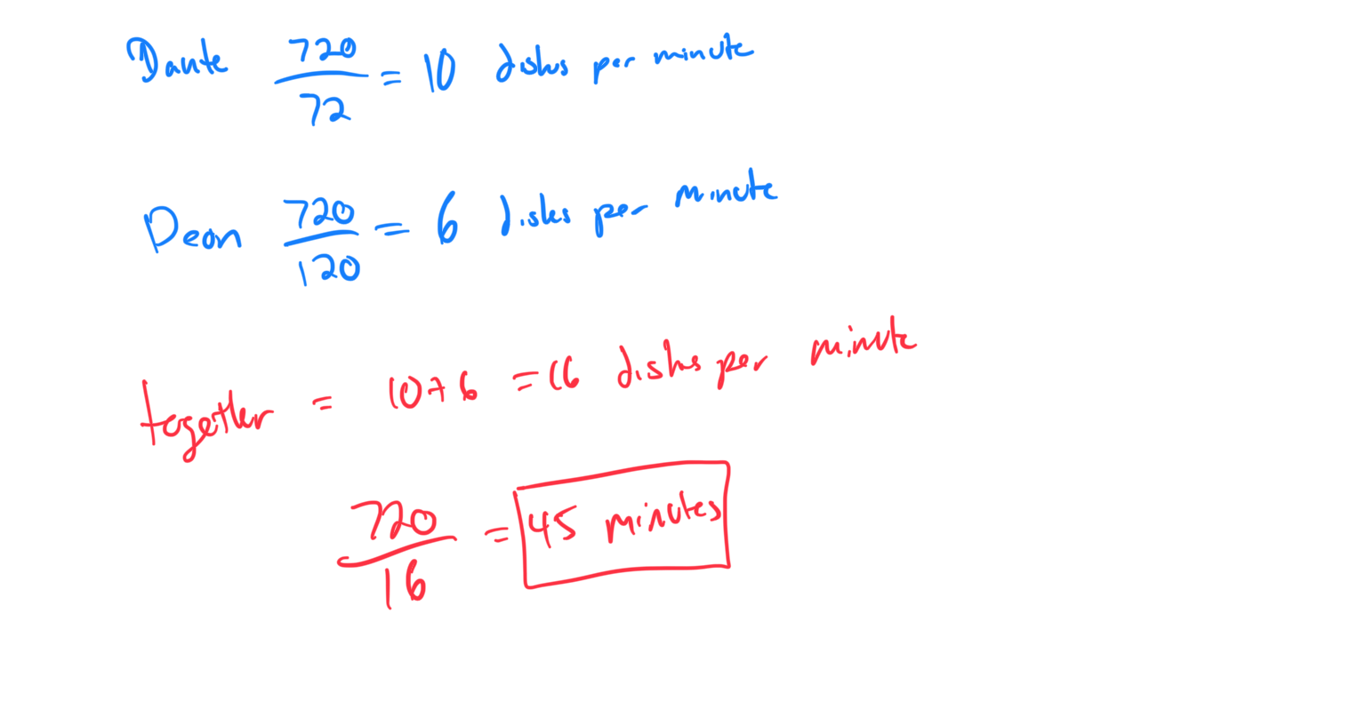 Dante 720/72 = 10 dishes per minute
Deon 720/120 = 6 dishes per minute
together = 10+6 = 16 dishes per minute
720/16 = 45 minutes